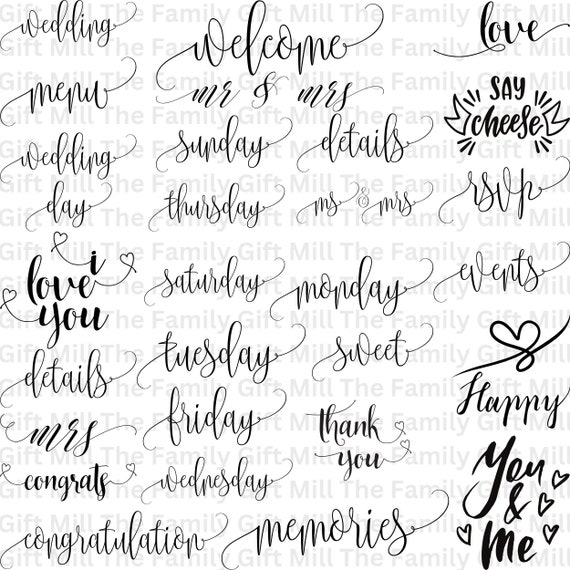 wedding
menu
wedding
day
i
love
you
details
mrs
congrats
congratulation
welcome
mr & mrs
sunday
details
thursday
ms & mrs
saturday
monday
tuesday
sweet
friday
thank
you
wednesday
memories
love
SAY
cheese
rsvp
events
Happy
You
&
Me
Gift Mill The Family Gift Mill The Family